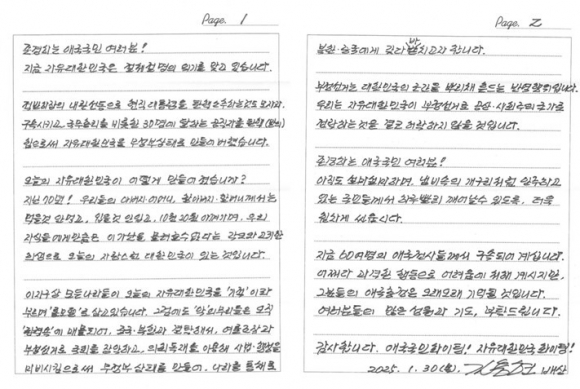 Page. 1
존경하는 애국국민 여러분!
지금 자유대한민국은 절체절명의 위기를 맞고 있습니다.
현직대통령을
구속시키고, 국무총리를 비롯한 30명이
함으로써 자유대한민국을 무정부상태로 만들어 버렸습니다.
오늘의 자유대한민국이 어떻게 만들어졌습니까?
지난 70년! 우리들의 아버지·어머니, 할아버지·할머니께서는
먹을것 안먹고, 입을것 안입고, 우리
자식들에게만큼은 이 가난을 물려줄수 없다는 각오와 고귀한
희생으로 오늘의 자랑스런 대한민국이 있는 것입니다.
이지구상 모든나라들이 오늘의 자유대한민국을 '기적'이라
부르며 '롤모델'로 삼고있습니다. 그럼에도
매몰되어, 중국·북한과 결탁해서, 여론조작과
부정선거로 국회를 장악하고, 의회독재를 이용해 사법·행정을
마비시킴으로써 무정부 상태로 만들어, 나라를 통째로
Page. 2
북한·중국에게 갖다 바치고자 합니다.
부정선거는 대한민국의 근간을 뿌리채 흔드는 반역행위입니다.
우리는 자유대한민국이 부정선거로 공산·사회주의국가로
전락하는것을 결코 허락하지 않을 것입니다.
존경하는 애국국민 여러분!
아직도 설마설마하며, 냄비속의 개구리처럼 안주하고
있는 국민들께서 하루빨리 깨어날수 있도록, 더욱
힘차게 싸웁시다.
지금 60여명의 애국전사들께서 구속되어 계십니다.
어쩌다 과격한 행동으로 어려움에 처해 계시지만,
그분들의 애국충정은 오래오래 기억될 것입니다.
여러분들의 많은 성원과 기도, 부탁드립니다.
감사합니다. 애국국민화이팅! 자유대한민국화이팅!
2025. 1. 30(목). 김용현 배상